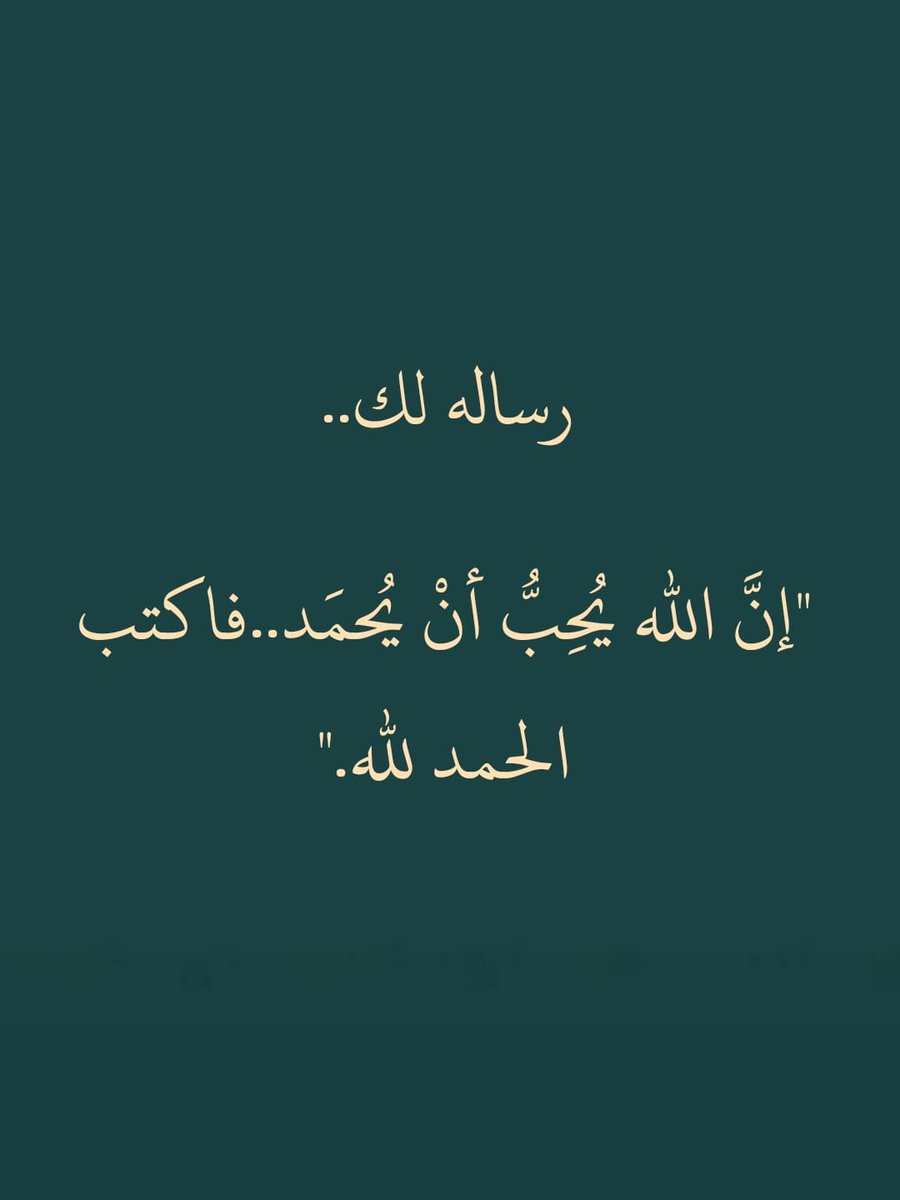 رساله لك..
"إنَّ الله يُحِبُّ أنْ يُحمَد..فاكتب
الحمد لله."